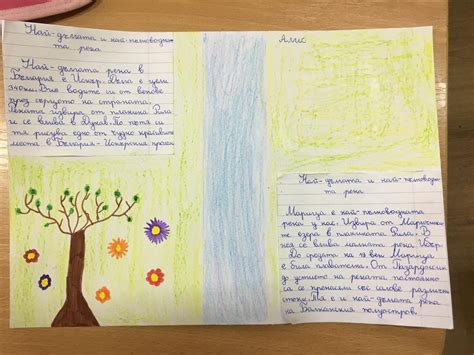 Най-дългата и най-пълноводна
та река
Най-дългата река в
България е Искър. Дълга е цели
Вие водите си от векове
през сърцето на страната.
Реката извира от планина Рила
и се влива в Дунав. По пътя си
тя рисува едно от чудно красивите
места в България-Искърския пролом
Алис
Най-дългата и най-пълновод-
на река
Марица е най-пълноводната
река у нас. Извира от Маричини-
те езера в планината Рила. В
нея се влива малката река Ибър
До средата на 19 век Марица
е била плавателна. От Пазарджик
до устието на реката постоянно
са се пренасяли със салове различни
стоки. Тя е и най-дългата река
на Балканския полуостров.